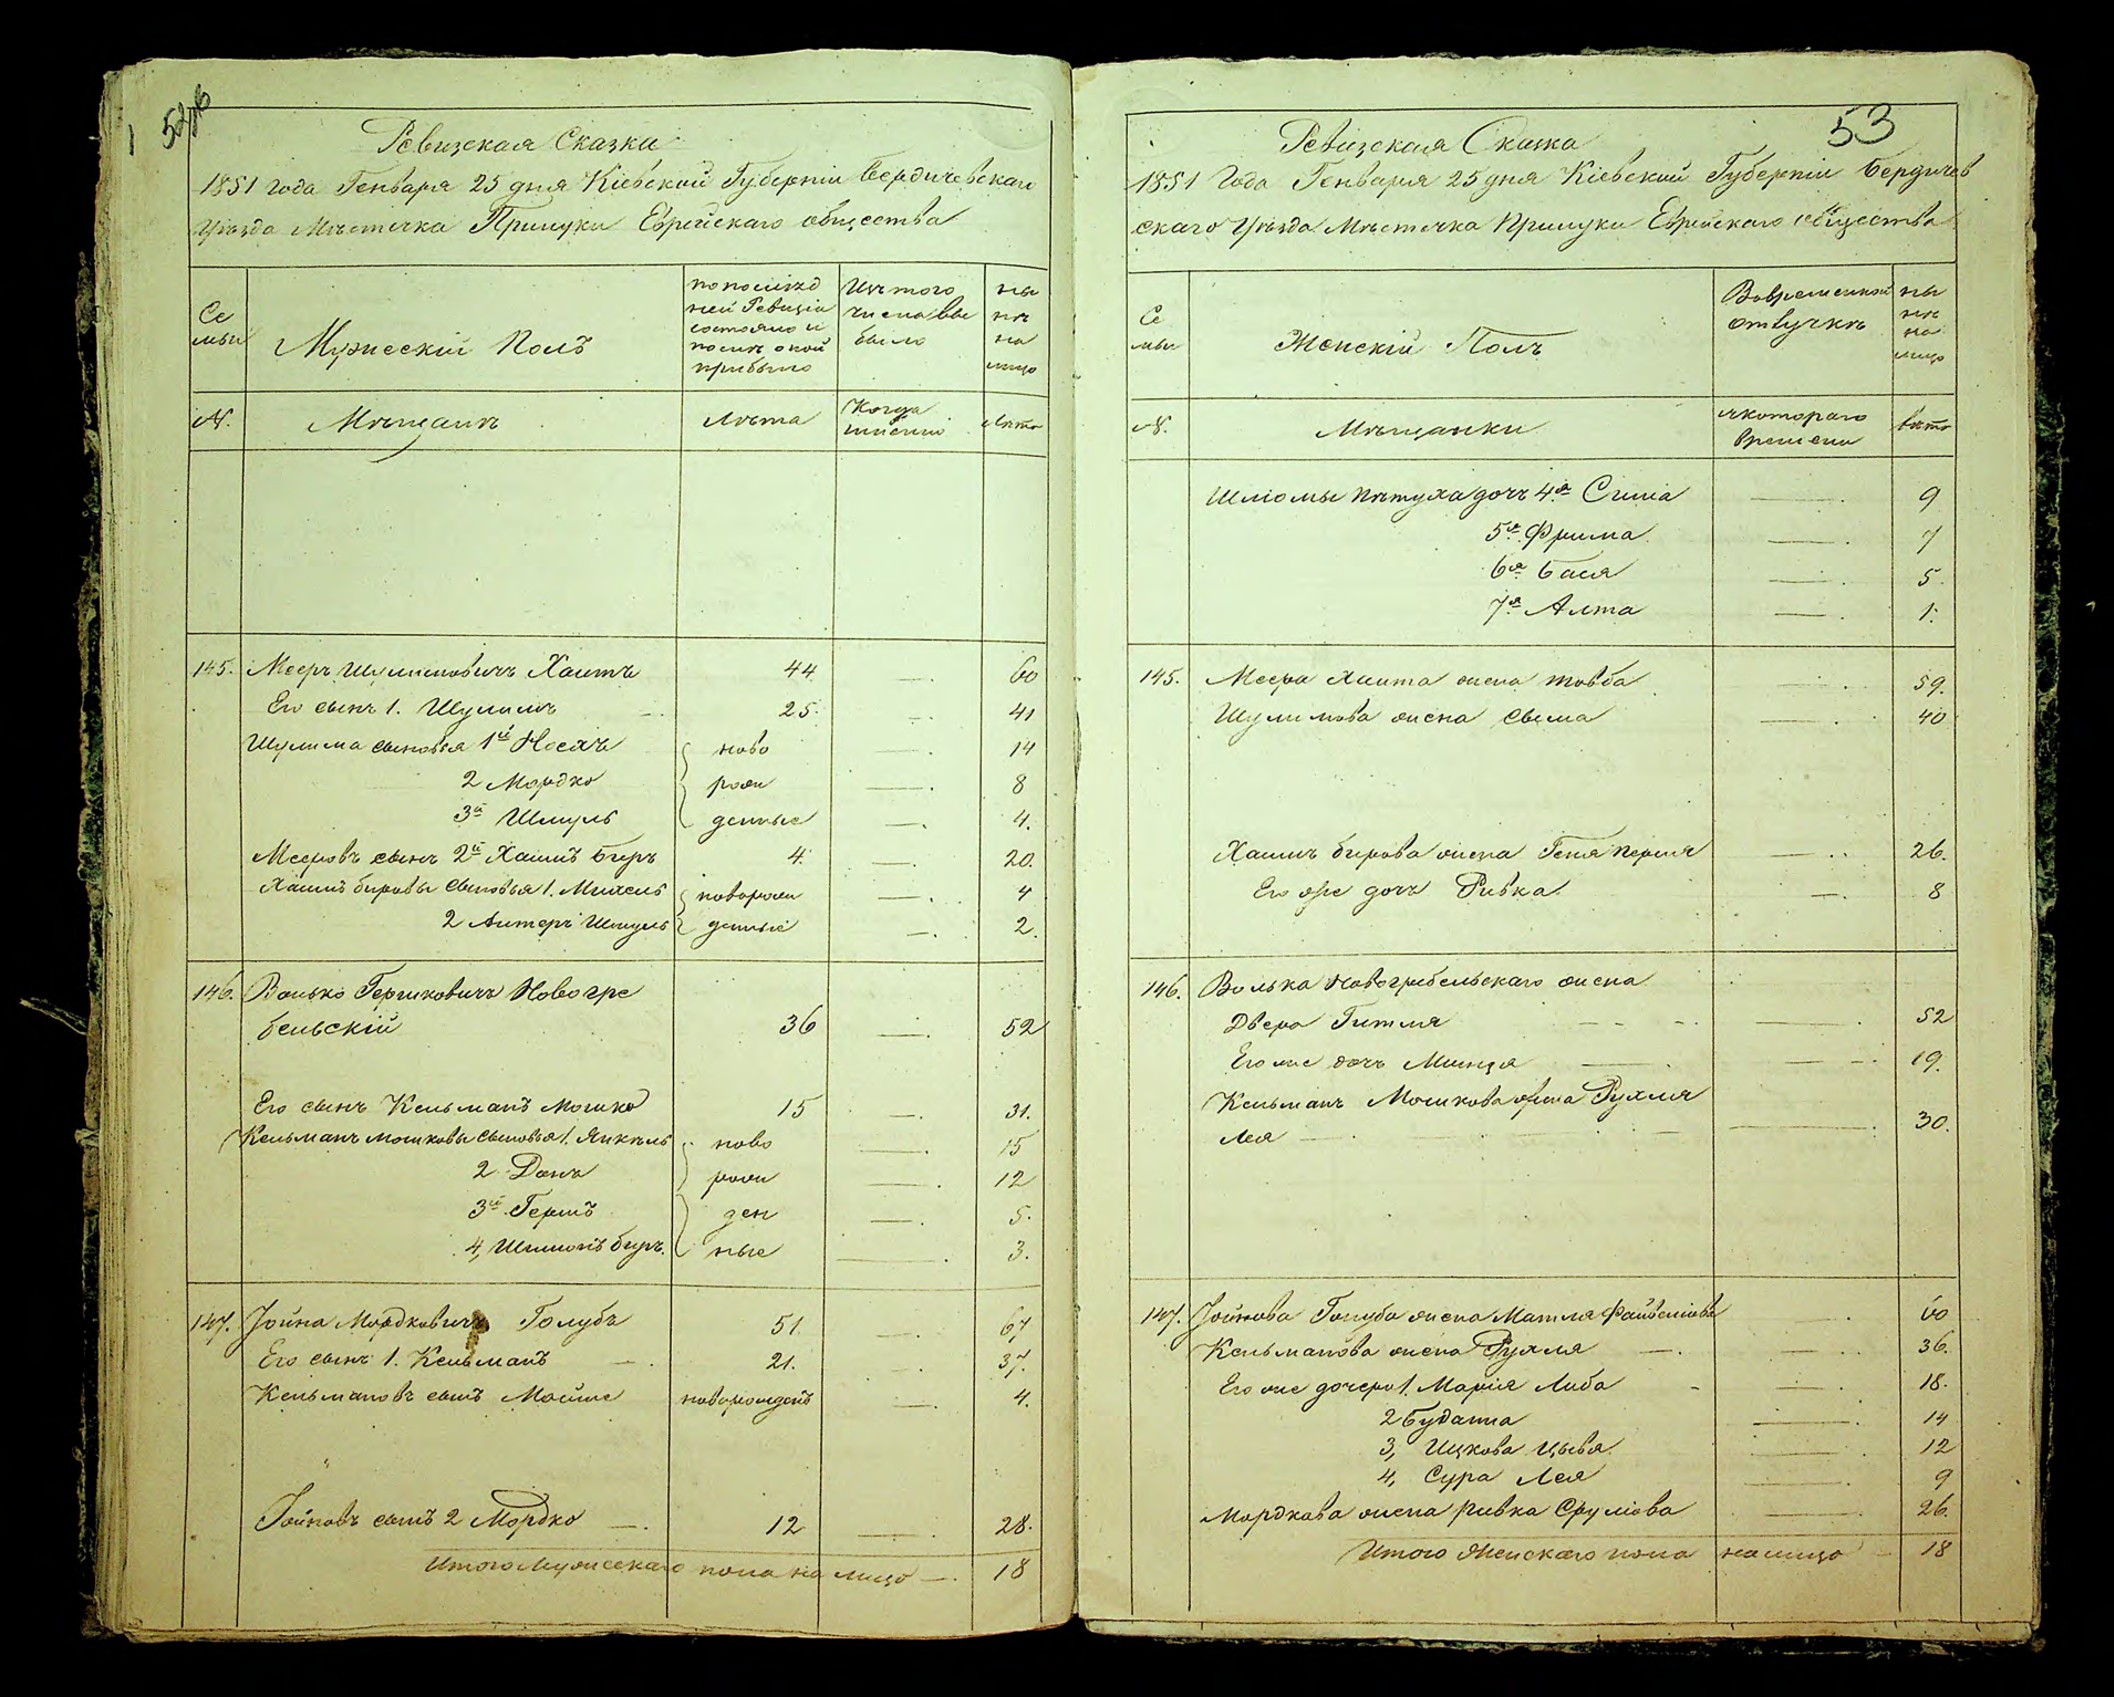 52об
Ревизская Сказка
1851 года Генваря 25 дня Кіевской Губерніи Бердичевскаго
Уѣзда Мѣстечка Прилуки Еврейскаго общества
Се
мьи
Мужескій Полъ
по послѣд
ней Ревизіи
состояло и
послѣ оной
прибыло
Изъ того
числа вы
было
ны
нѣ
на
лицо
№.
Мѣщанъ
Лѣта
Когда
именно
Лѣта
145. Мееръ Шулимовичъ Хаитъ 44 —. 60
Его сынъ 1. Шулимъ —. 25. —. 41
Шулима сыновья 1й Носахъ ново —. 14
2 Мордко рож —. 8
3й Шмуль денные —. 4.
Мееровъ сынъ 2й Хаимъ Беръ 4. —. 20.
Хаимъ Беровы сыновья 1. Михель новорож —. 4
2 Антеръ Шмуль денные —. 2.
146. Волько Гершковичъ Новогре
бельскій 36 —. 52
Его сынъ Кельманъ Мошко 15 —. 31.
Кельманъ Мошковы сыновья 1. Янкель ново —. 15
2 Данъ рож —. 12
3й Гершъ ден —. 5.
4, Шимонъ Беръ. ные —. 3.
147. Іойна Мордковичъ Голубъ 51. —. 67
Его сынъ 1. Кельманъ —. 21. . 37.
Кельмановъ сынъ Мойше новорожденъ —. 4.
Іойновъ сынъ 2 Мордко —. 12 —. 28.
Итого Мужескаго пола на лицо —. 18
53
Ревизская Сказка
1851 Года Генваря 25 дня Кіевской Губерніи Бердичев
скаго Уѣзда Мѣстечка Прилуки Еврейскаго общества
Се
мьи
Женскій Полъ
Во временной
отлучкѣ
ны
нѣ
на
лицо
№.
Мѣщанки
съ котораго
времени
Лѣта
Шліомы Пѣтуха дочь 4я Сима —. 9
5я Фрима —. 7
6я Бася —. 5.
7я Алта —. 1.
145. Меера Хаита жена Товба —. 59.
Шулимова жена Сыма —. 40
Хаимъ Берова жена Геня Перля —.. 26.
Его же дочь Ривка. —. 8
146. Волька Новогребельскаго жена
Двера Гитля —. 52
Его же дочь Минця —. 19.
Кельманъ Мошкова жена Рухля
Лея —. —. 30.
147. Іойнова Голуба жена Матля Файвелова —. 60
Кельманова жена Рухля —. —. 36.
Его же дочери 1. Марія Либа —. 18.
2 Буданна —. 14
3, Ицкова Цывя. —. 12
4, Сура Лея —. 9
Мордкова жена Ривка Срулова —. 26.
Итого Женскаго пола на лицо — 18